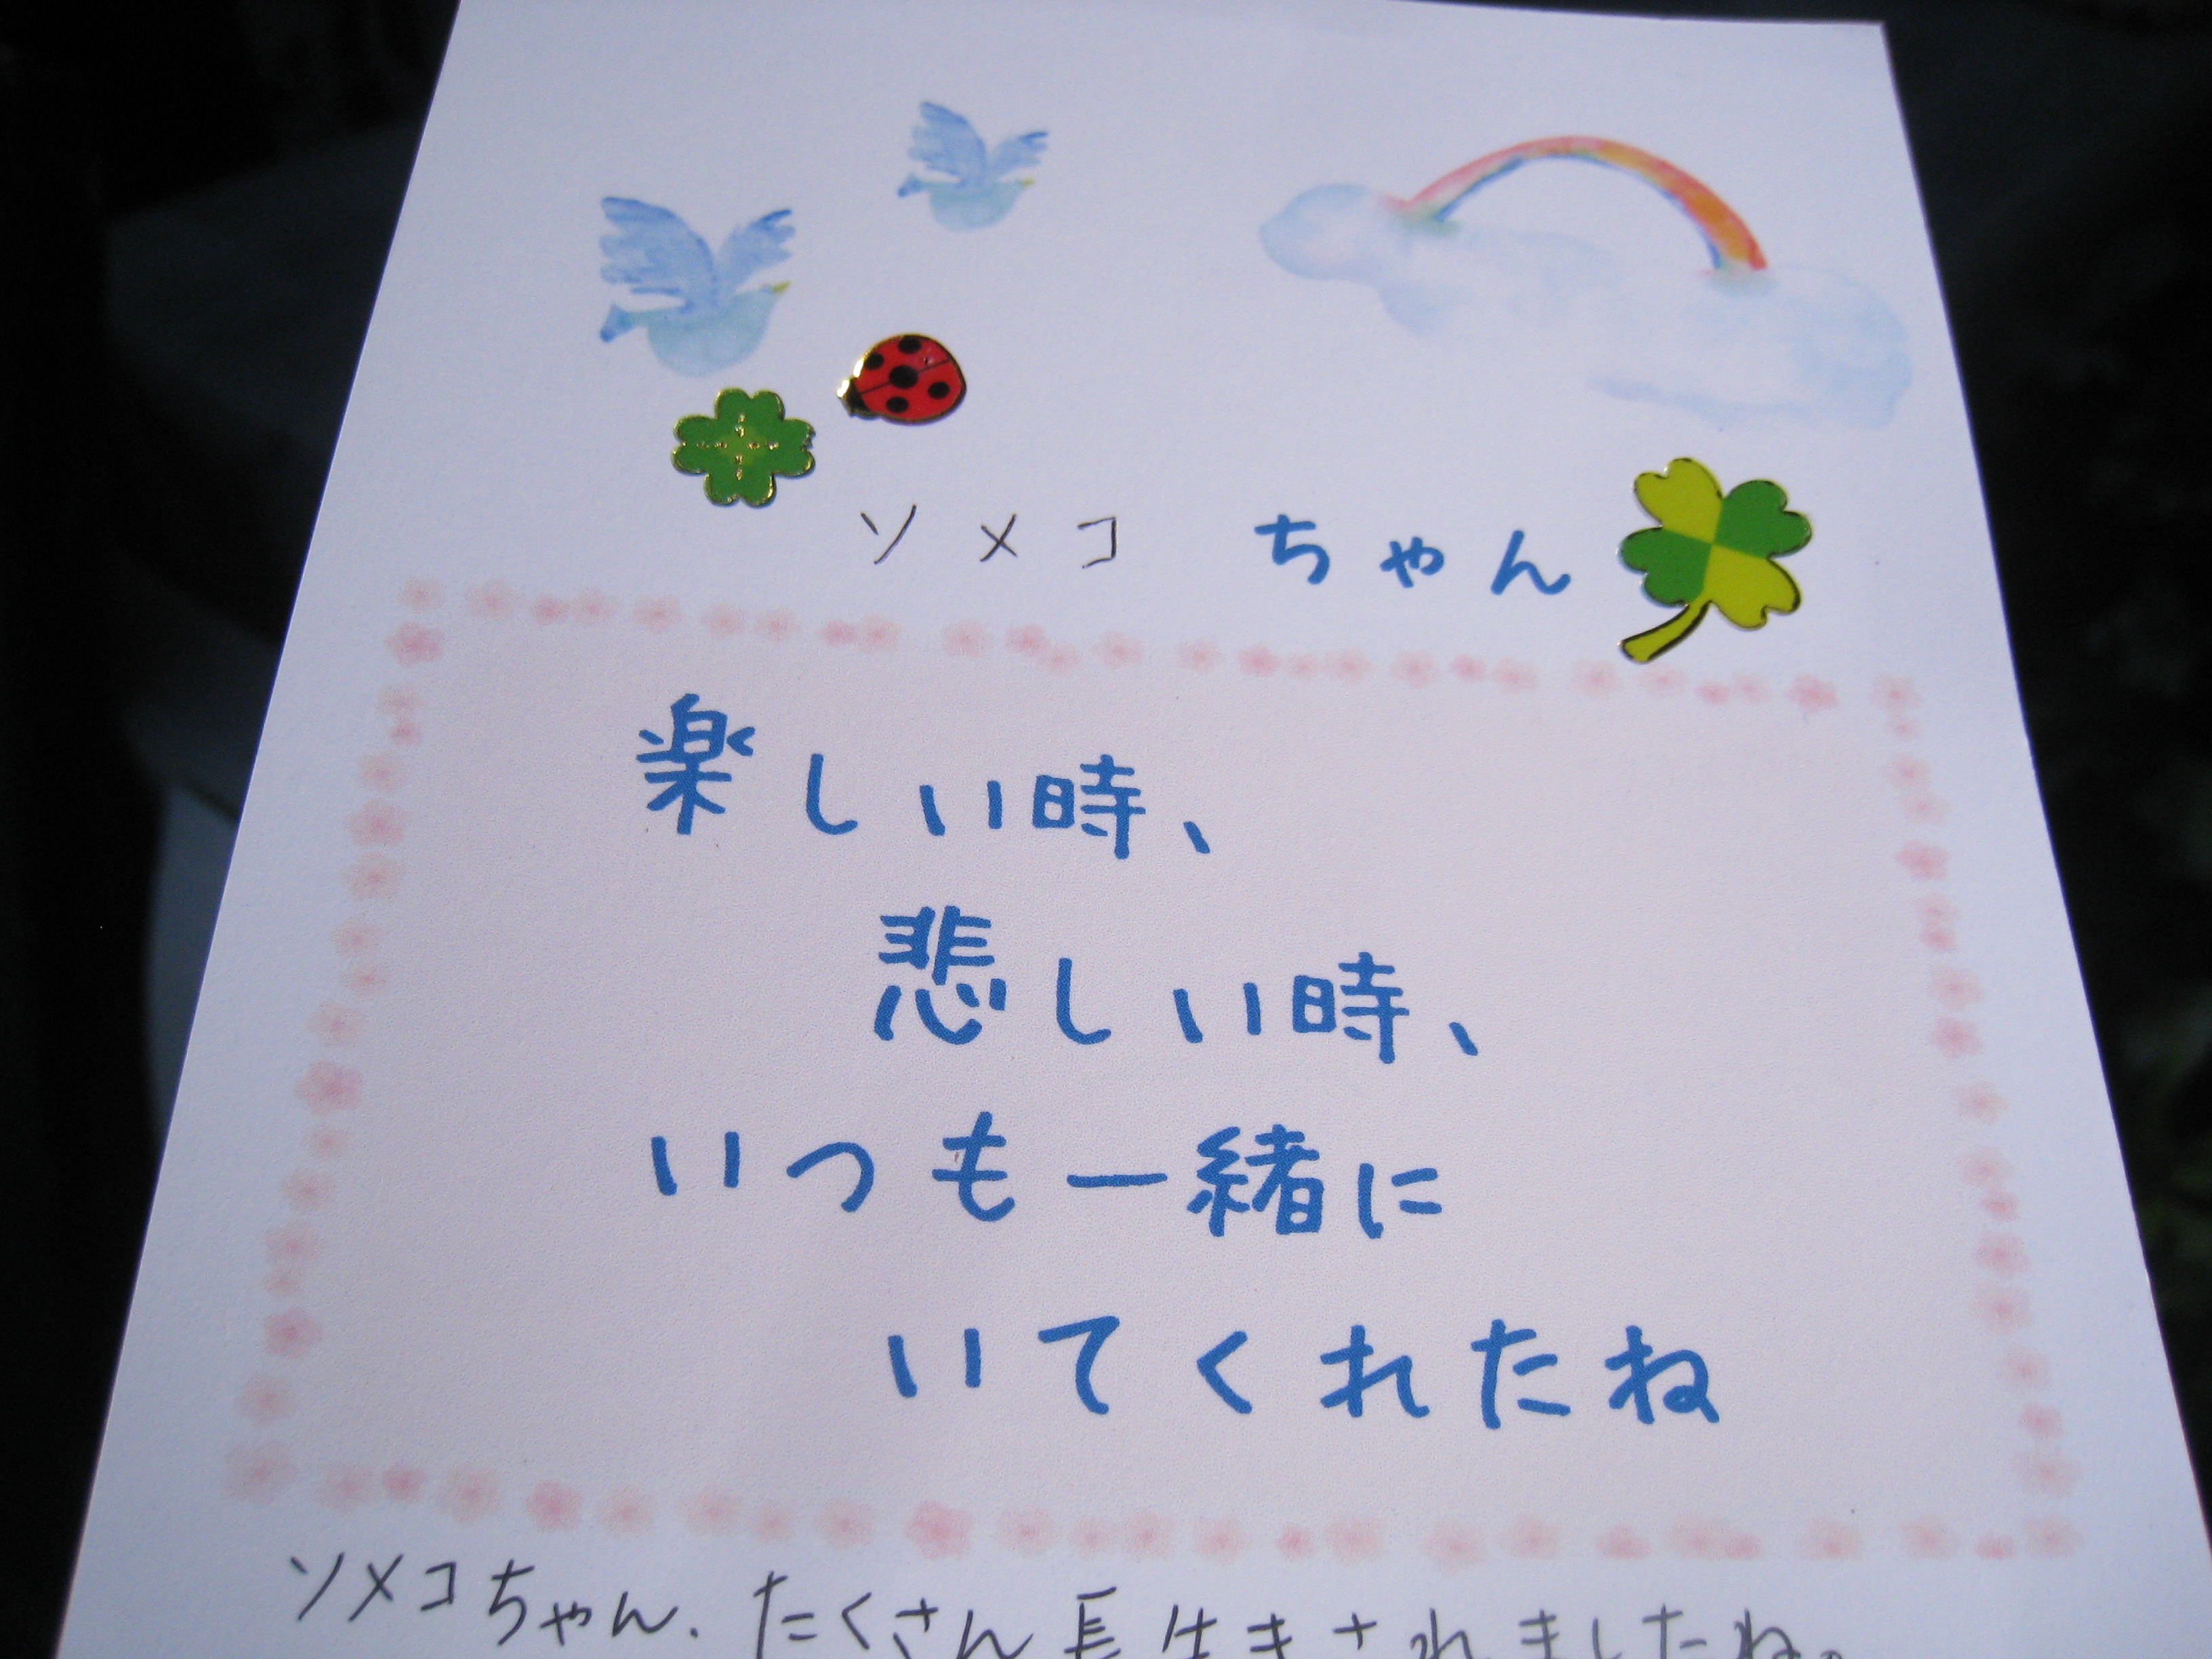 ソメコ ちゃん
楽しい時、
悲しい時、
いつも一緒に
いてくれたね
ソメコちゃん、たくさん長生きされましたね。